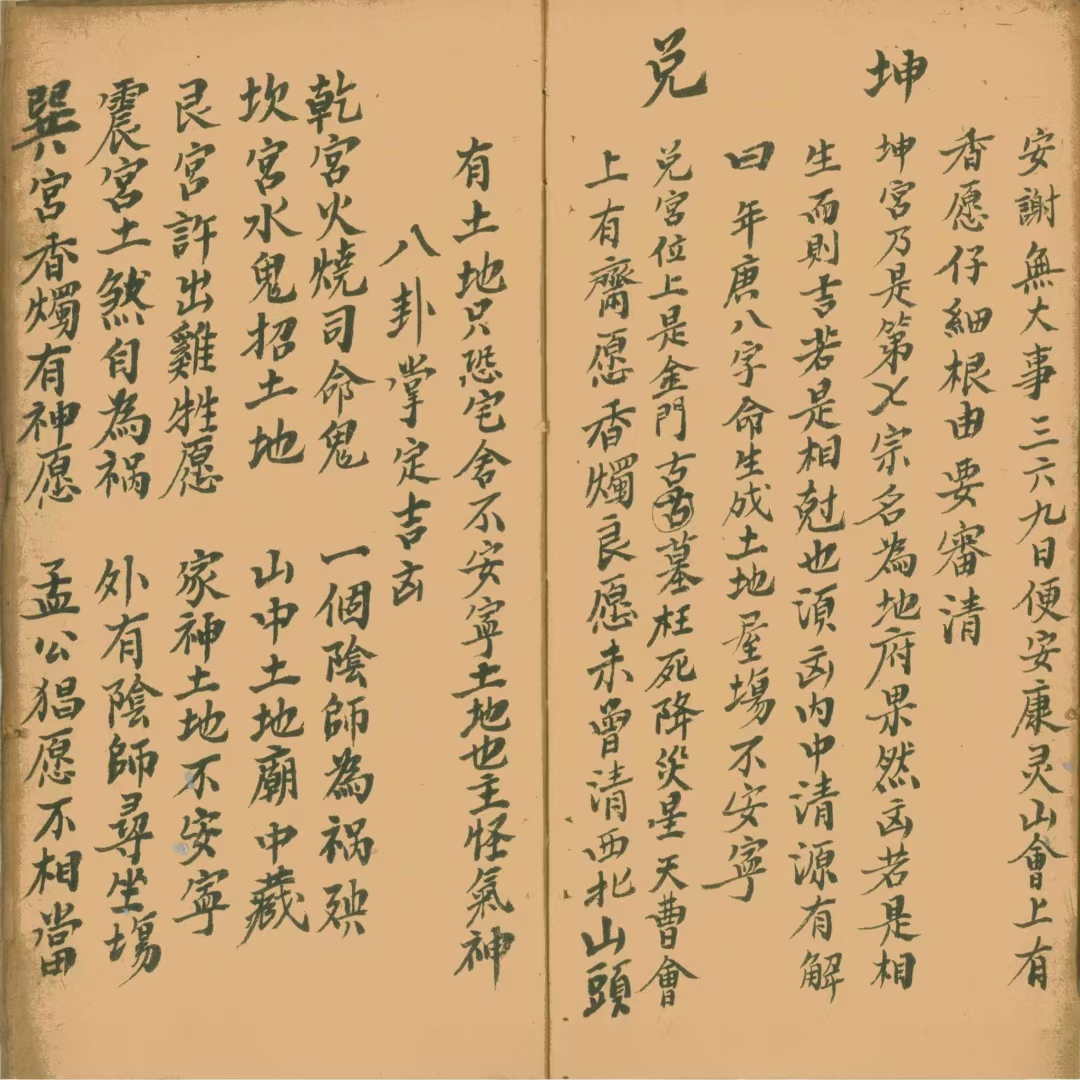 安謝無大事三六九日便安康灵山會上有
香愿仔細根由要審清
坤
坤宮乃是第乂宗名為地府果然凶若是相
生而則吉若是相尅也須凶内中清源有解
曰年庚八字命生成土地屋場不安寧
兑
兑宮位上是金門古墓枉死降災星天曹會
上有齋愿香燭良愿未曾清西北山頭
有土地只恐宅舍不安寧土地也主怪氣神
八卦掌定吉凶
乾宮火燒司命鬼 一個陰師為祸殃
坎宮水鬼招土地 山中土地廟中藏
艮宮許出雞牲愿 家神土地不安寧
震宮土煞自為祸 外有陰師尋坐塲
巽宮香燭有神愿 孟公猖愿不相當